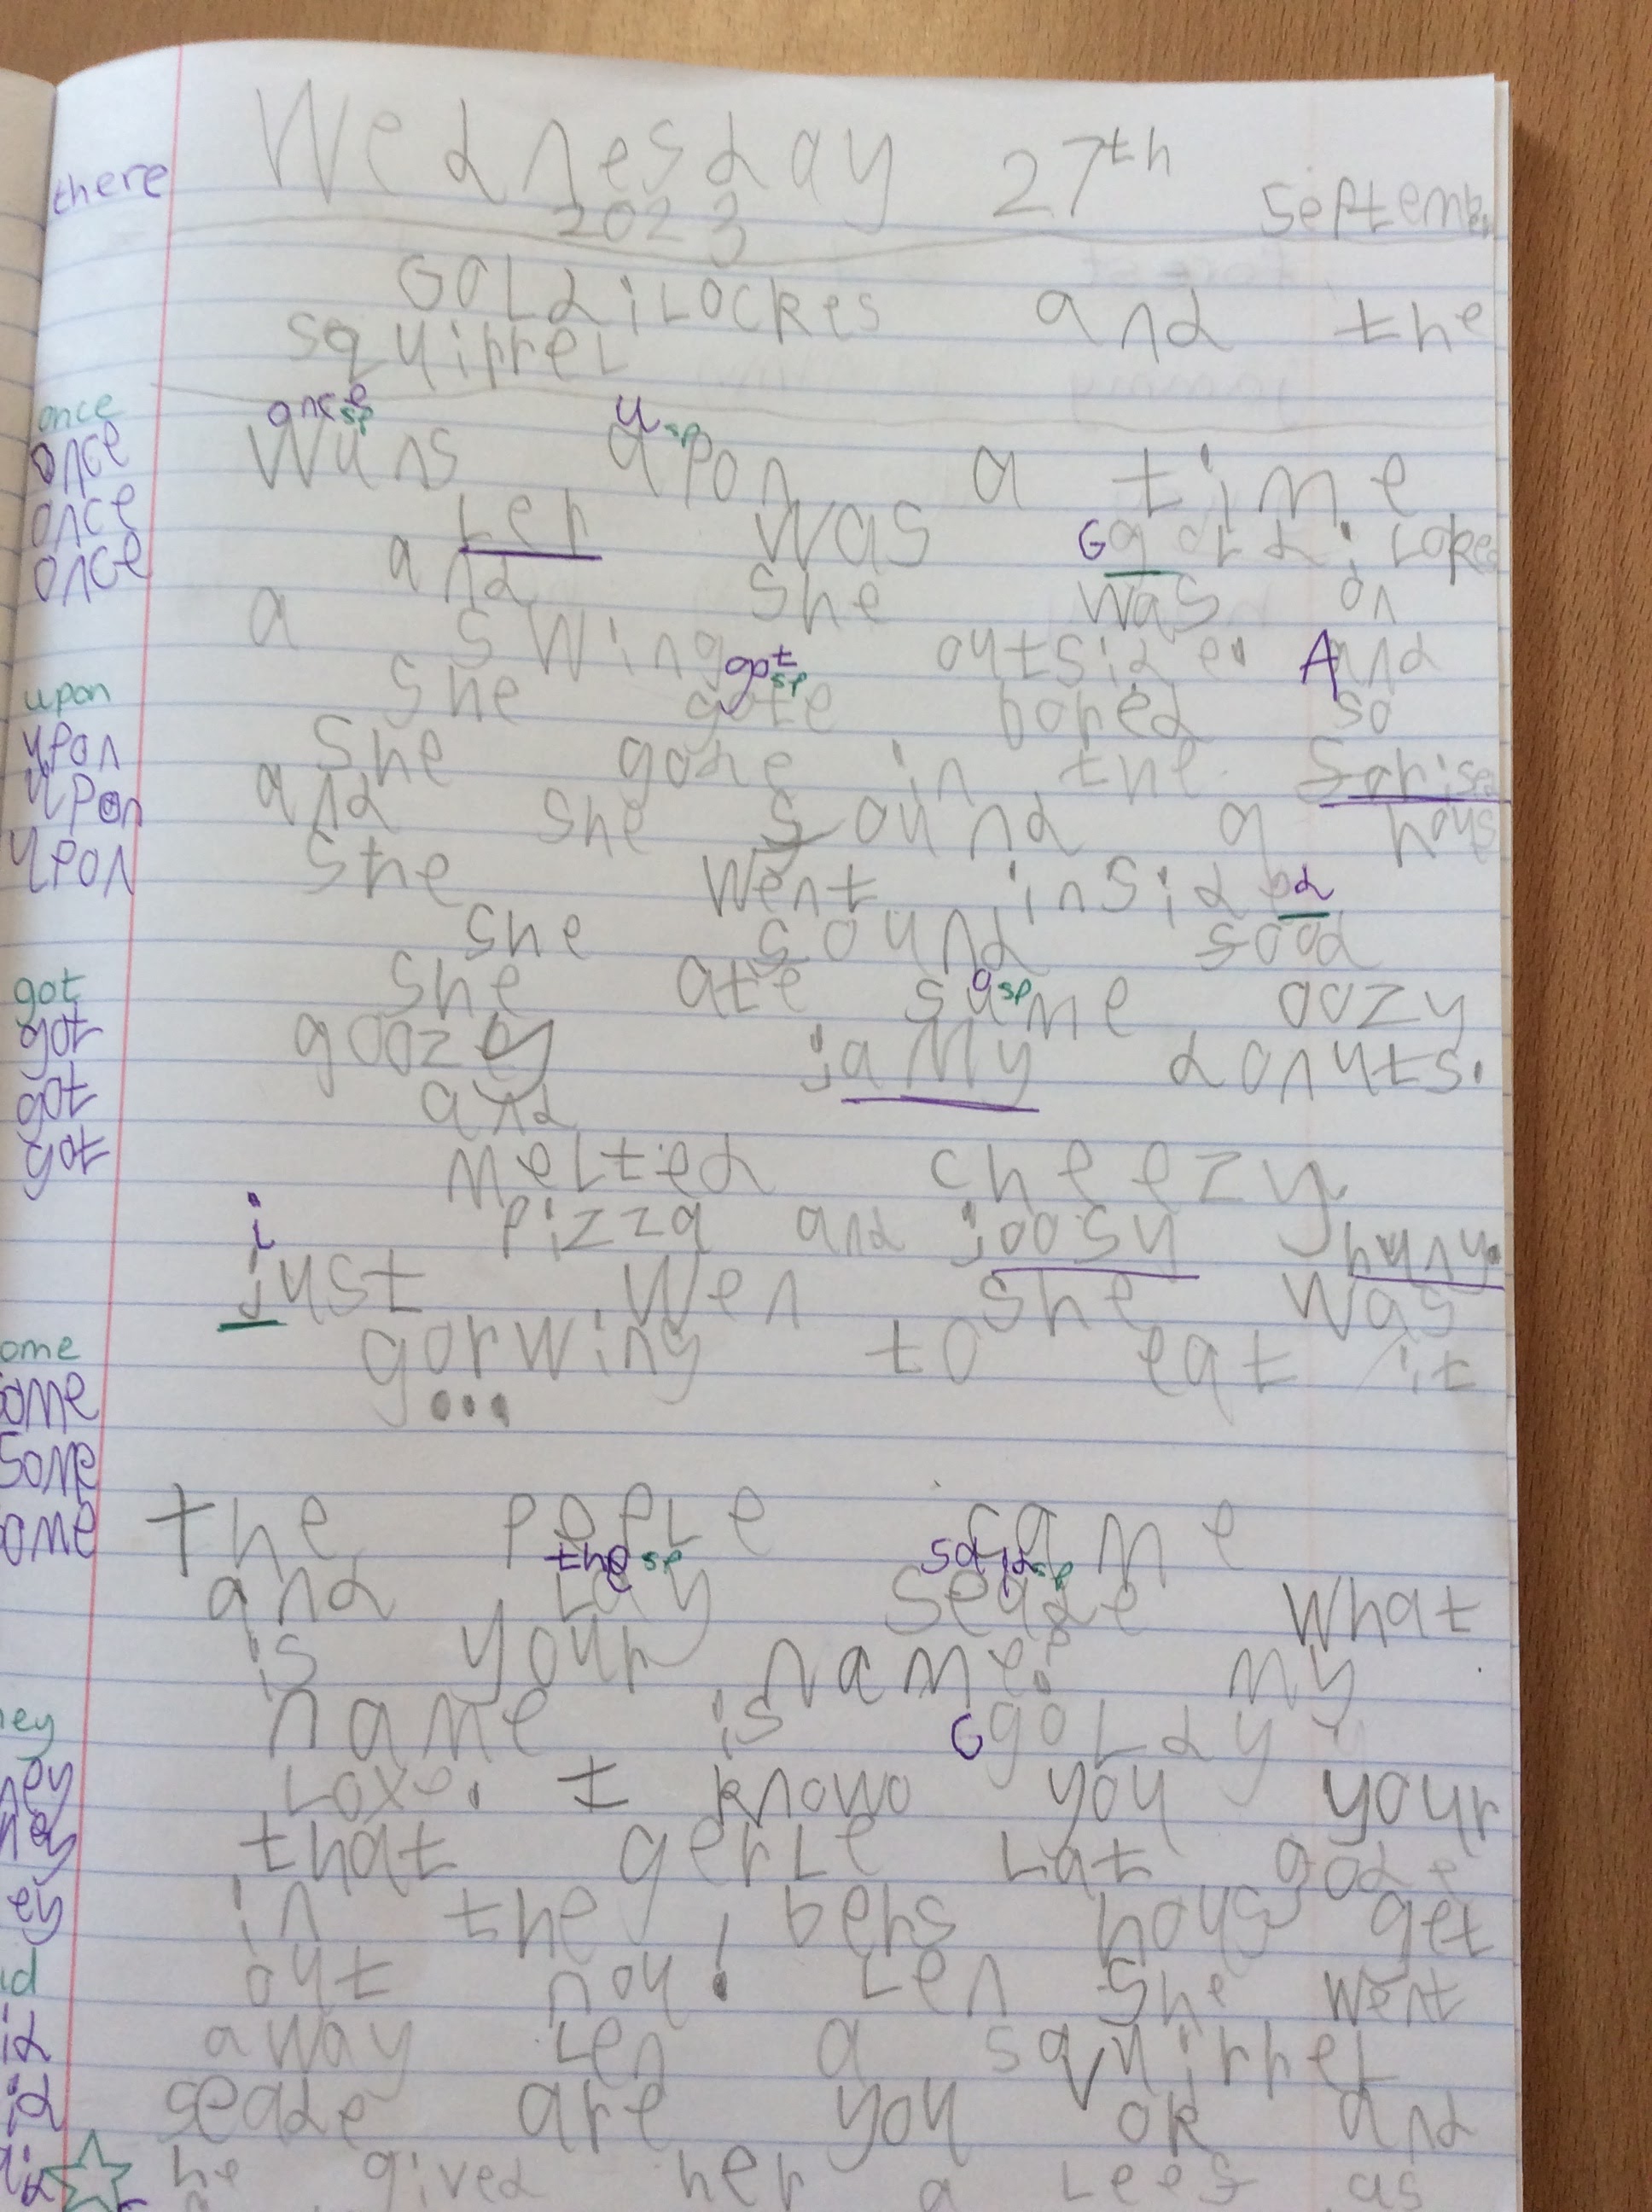 there
Wednesday 27th Septemb
2023
GOLdiLOCKes and the
squirreL
once
once sp u sp
once
Wuns apon a time
once
Ler was G goLdiLoKes
once
and she was on
a swing outside. And
got sp
upon
she gote bored so
upon
she gode in the
upon
and she found a hays
upon
she went insided
she found food
got
she ate sume oozy
o sp
got
goozey jamy donuts.
got
and
got
melted cheezy
j
pizza and joosy huny.
just wen she was
ome
gorwing to eat it
...
ome
some
ome
the pepLe came
the sp said sp
and Lay seade what
is your name? my
name is G goLdy
ey
Loxe. I knowo you your
ey
that gerLe Lat gode
ey
in the bers hays get
id
out noy! Len she went
id
away Len a squirreL
id
seade are you ok and
id
he gived her a Leef as